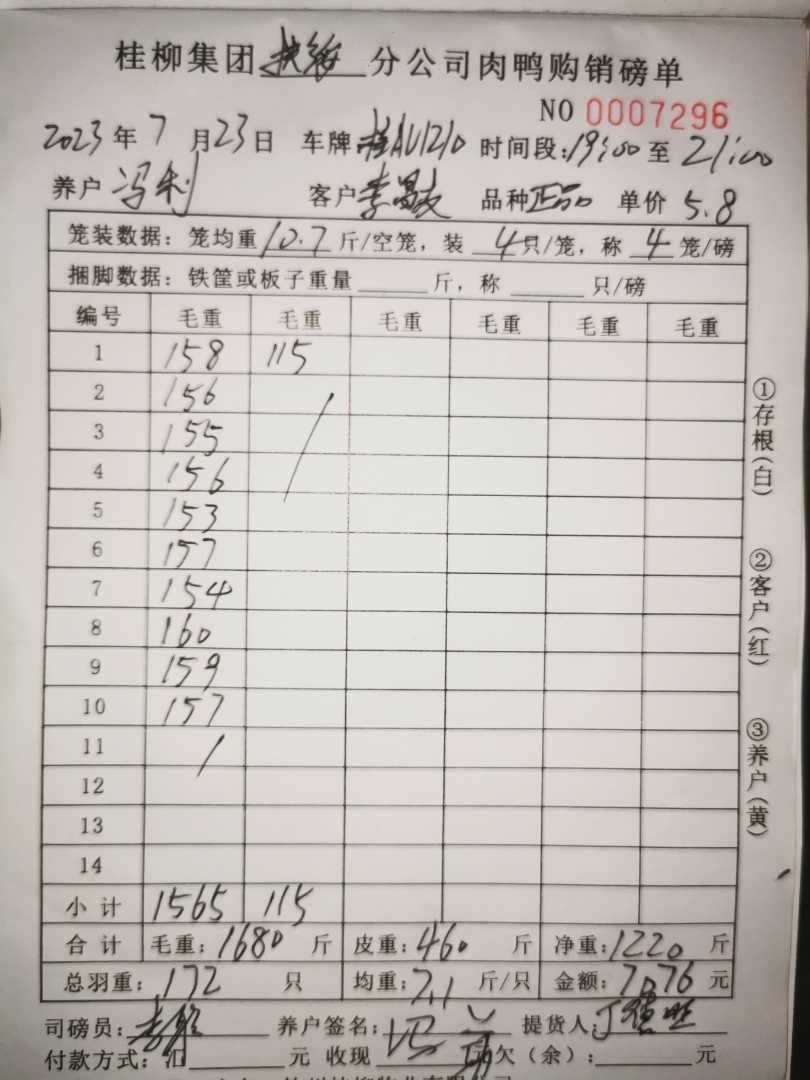 桂柳集团扶绥分公司肉鸭购销磅单
NO 0007296
2023年7月23日 车牌:桂AU1210 时间段:19:00至21:00
养户 冯利 客户 李昌友 品种 正品 单价 5.8
笼装数据：笼均重 10.7 斤/空笼，装 4 只/笼，称 4 笼/磅
捆脚数据：铁筐或板子重量 斤，称 只/磅
编号 毛重 毛重 毛重 毛重 毛重 毛重
1 158 115
2 156
3 155
4 156
5 153
6 157
7 154
8 160
9 159
10 157
11
12
13
14
小计 1565 115
合计 毛重：1680 斤 皮重：460 斤 净重：1220 斤
总羽重：172 只 均重：7.1 斤/只 金额：7076 元
司磅员：李 养户签名：冯 提货人：丁德旺
付款方式：汇 元 收现 欠（余）： 元
①存根（白）
②客户（红）
③养户（黄）